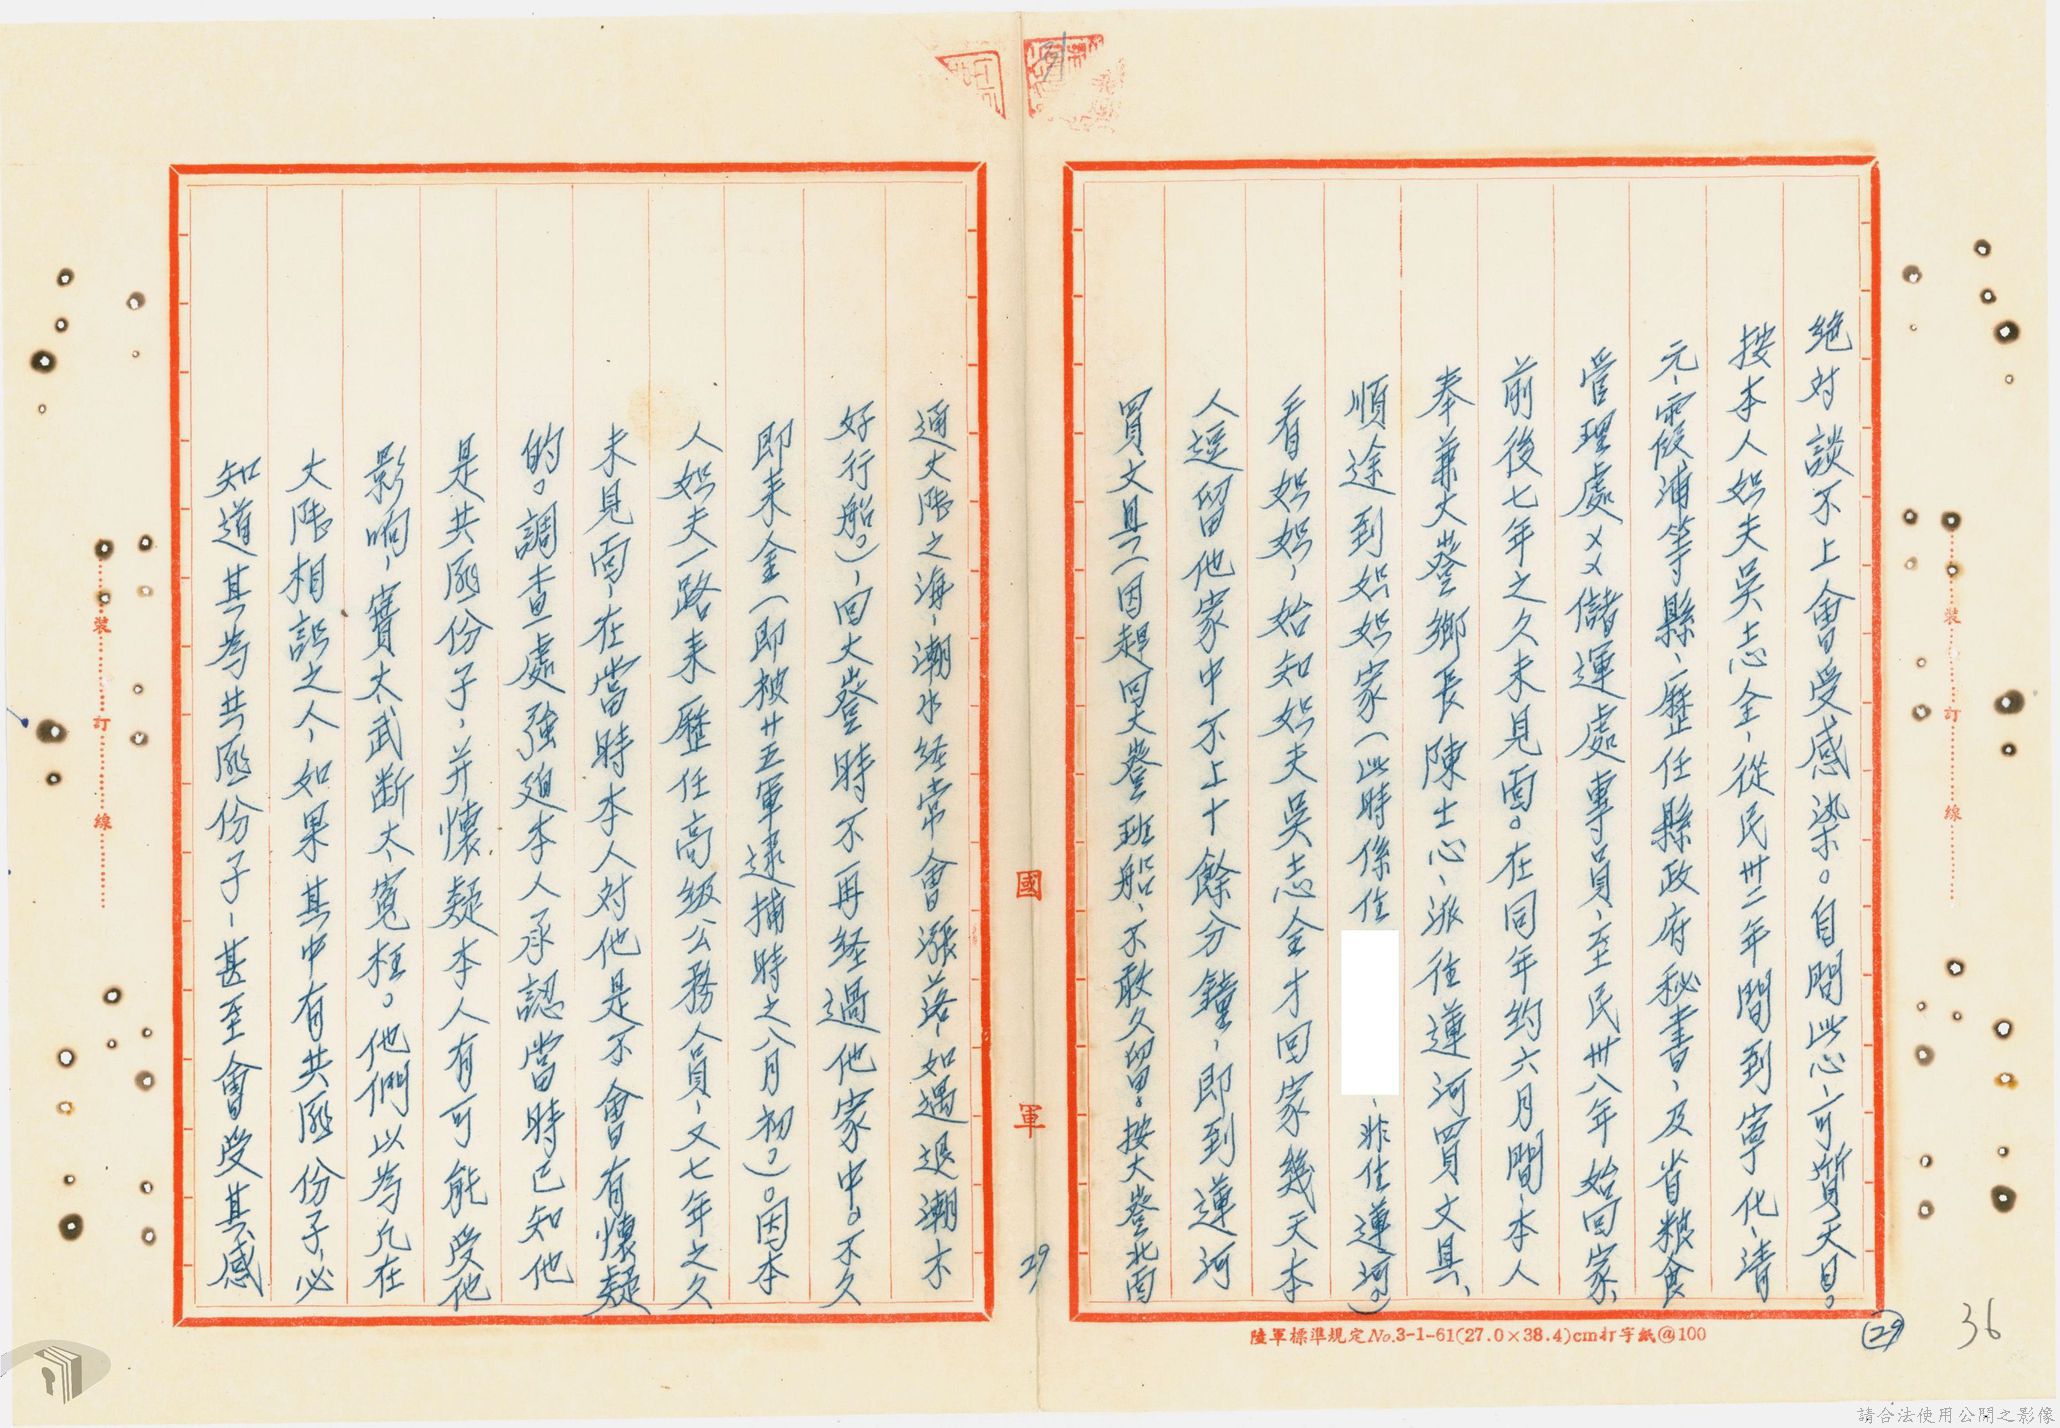 絕对談不上會受感染。自問此心，可質天日。
按本人姐夫吳志全，從民卅二年間到寧化、清
元、霞浦等縣，歷任縣政府秘書，及省糧食
管理處××儲運處專員，至民卅八年始回家，
前後七年之久未見面。在同年約六月間，本人
奉兼大嶝鄉長陳士心，派往蓮河買文具，
順途到姐姐家（此時係住
，非住蓮河。）
看姐姐，始知姐夫吳志全才回家幾天本
人逗留他家中不上十餘分鐘，即到蓮河
買文具（因趕回大嶝班船，不敢久留。按大嶝北面
通大陸之海，潮水経常會漲落，如遇退潮才
好行船。），回大嶝時不再経過他家中。不久
即来金（即被廿五軍逮捕時之八月初。）。因本
人姐夫一路来歷任高級公務人員，又七年之久
未見面，在當時本人对他是不會有懷疑
的。調查處強迫本人承認當時已知他
是共匪份子，并懷疑本人有可能受他
影响，實太武断太寃枉。他們以為凡在
大陸相識之人，如果其中有共匪份子，必
知道其為共匪份子，甚至會受其感
國軍
29
29
36
裝訂線
裝訂線
陸軍標準規定No.3-1-61(27.0×38.4)cm打字紙@100
請合法使用公開之影像